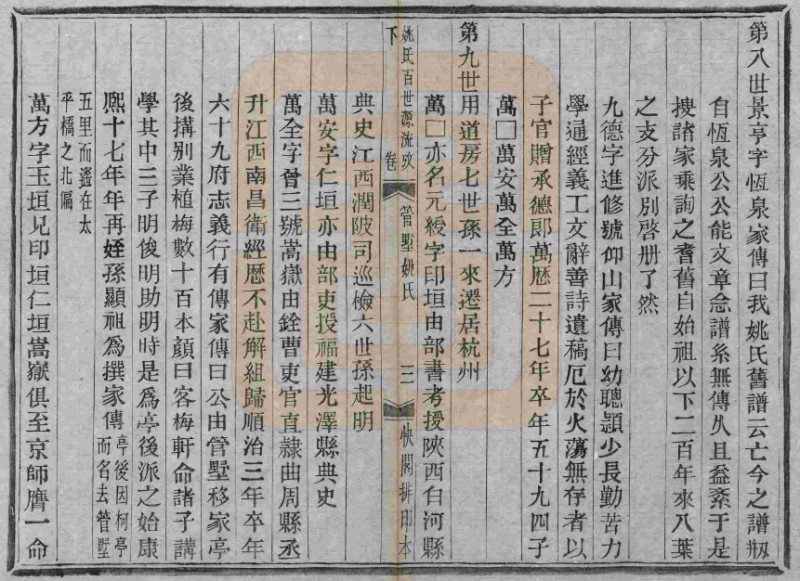 第八世景亨字恆泉家傳曰我姚氏舊譜云亡今之譜刱
自恆泉公公能文章念譜系無傳久且益紊于是
搜諸家乘詢之耆舊自始祖以下二百年來八葉
之支分派別啓册了然
九德字進修號仰山家傳曰幼聰頴少長勤苦力
學通經義工文辭善詩遺稿厄於火蕩無存者以
子官贈承德郞萬歷二十七年卒年五十九四子
萬□萬安萬全萬方
第九世用道房七世孫一來遷居杭州
萬□亦名元綬字印垣由部書考授陝西白河縣
典史江西澗陂司巡檢六世孫起明
姚氏百世源流攷 卷下 管墅姚氏 三 快閣排印本
萬安字仁垣亦由部吏授福建光澤縣典史
萬全字曾三號嵩嶽由銓曹吏官直隷曲周縣丞
升江西南昌衛經歷不赴解組歸順治三年卒年
六十九府志義行有傳家傳曰公由管墅移家亭
後搆别業植梅數十百本顏曰客梅軒命諸子講
學其中三子明俊明助明時是爲亭後派之始康
熙十七年年再姪孫顯祖爲撰家傳亭後因柯亭而名去管墅
五里而遙在太平橋之北隔
萬方字玉垣兄印垣仁垣嵩嶽俱至京師膺一命